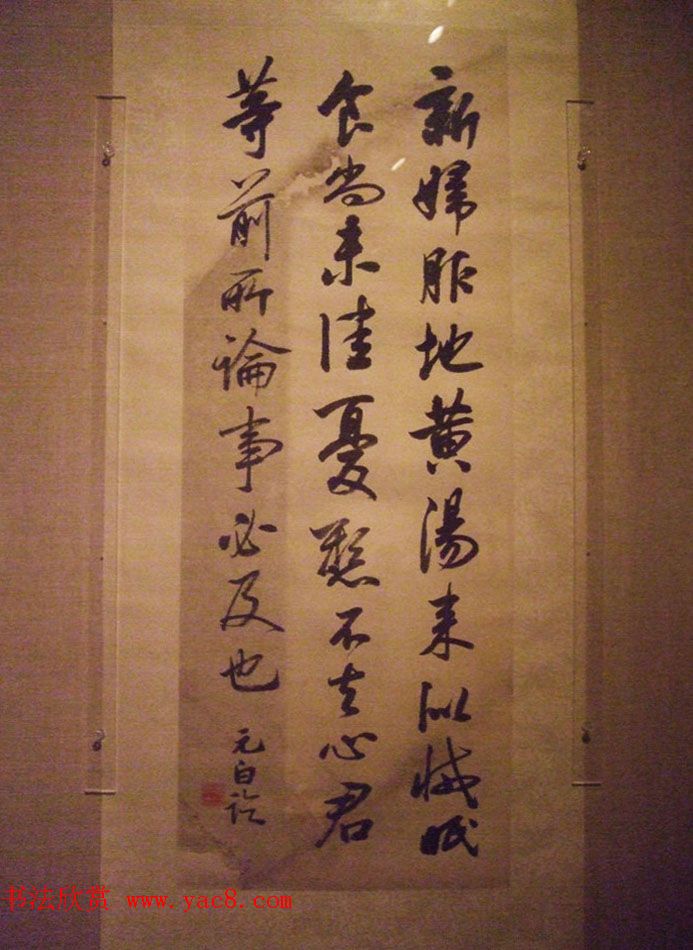 新婦服地黃湯來似減眠
食尚未佳憂懸不去心君
等前所論事必及也
元白臨
书法欣赏 www.yac8.com